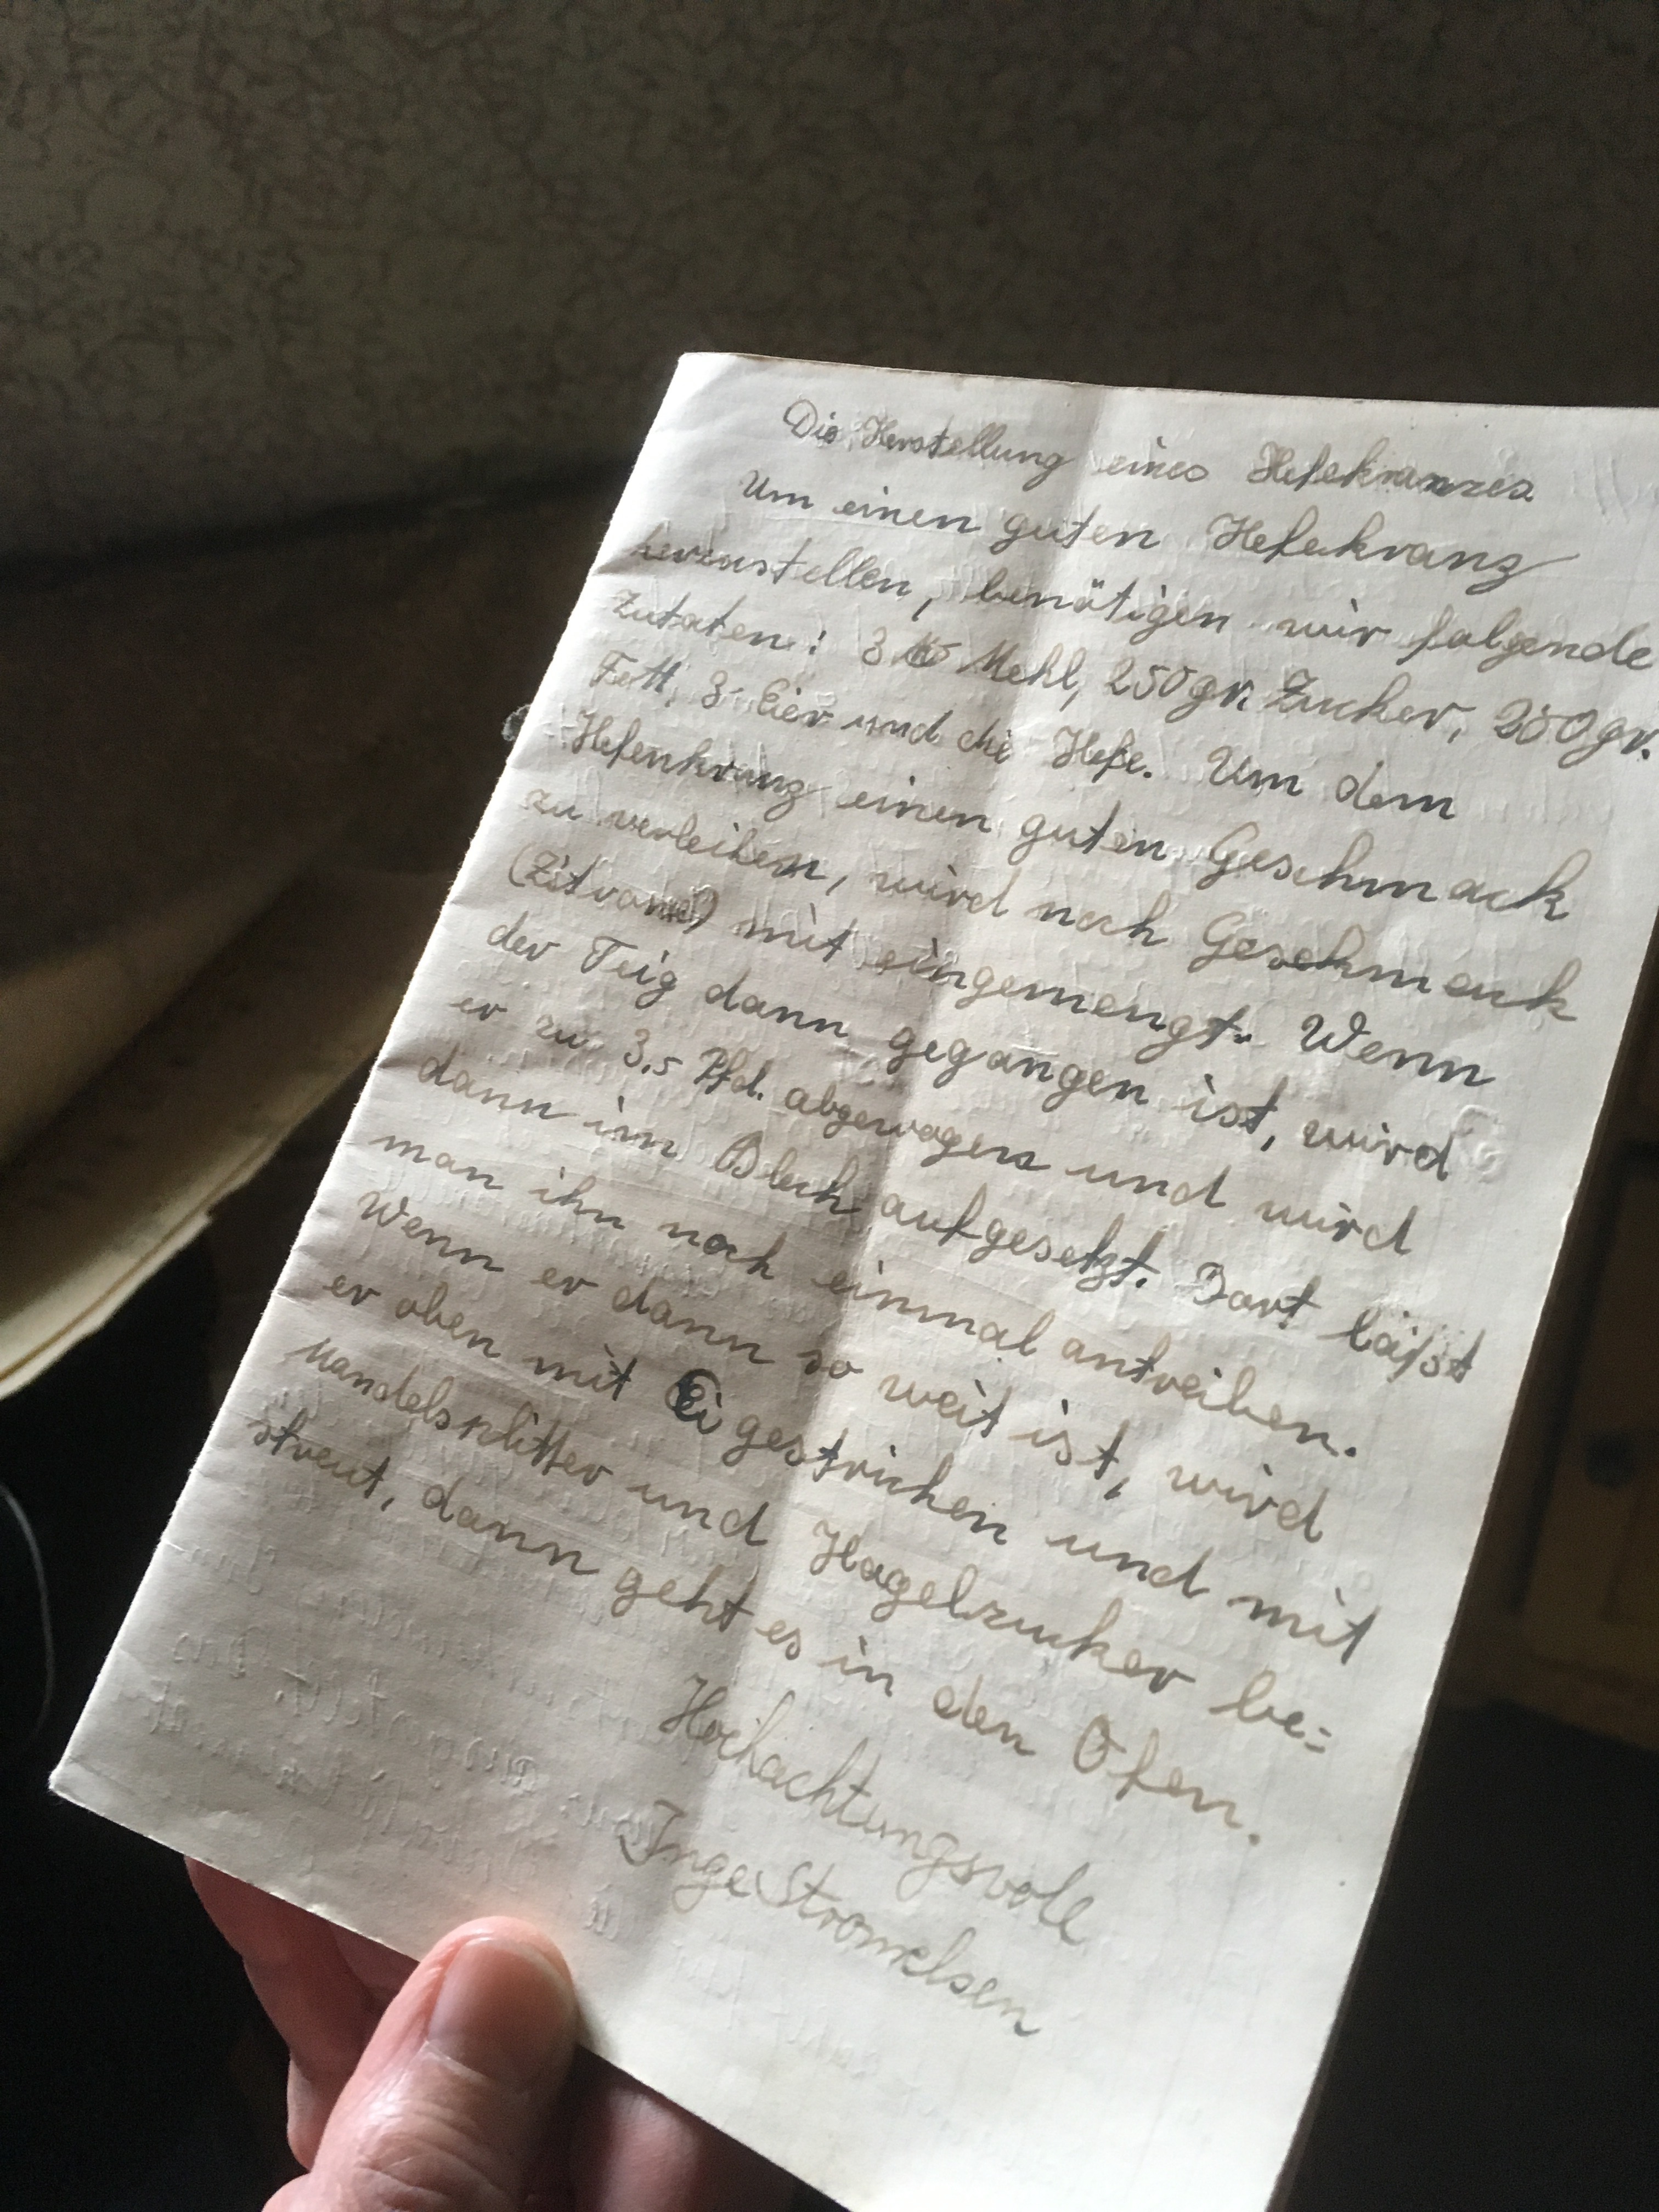 Die Herstellung eines Hefekranzes
Um einen guten Hefekranz
herzustellen, benötigen wir folgende
Zutaten: 3 Mehl, 250 gr. Zucker, 250 gr.
Fett, 3 Eier und die Hefe. Um dem
Hefenkranz einen guten Geschmack
zu verleihen, wird nach Geschmack
mit eingemengt. Wenn
der Teig dann gegangen ist, wird
er zu 3.5 Pfd. abgewogen und wird
dann im Blech aufgesetzt. Dort läßt
man ihn noch einmal antreiben.
Wenn er dann so weit ist, wird
er oben mit Ei gestrichen und mit
Mandelsplitter und Hagelzucker be=
streut, dann geht es in den Ofen.
Hochachtungsvoll
Inge